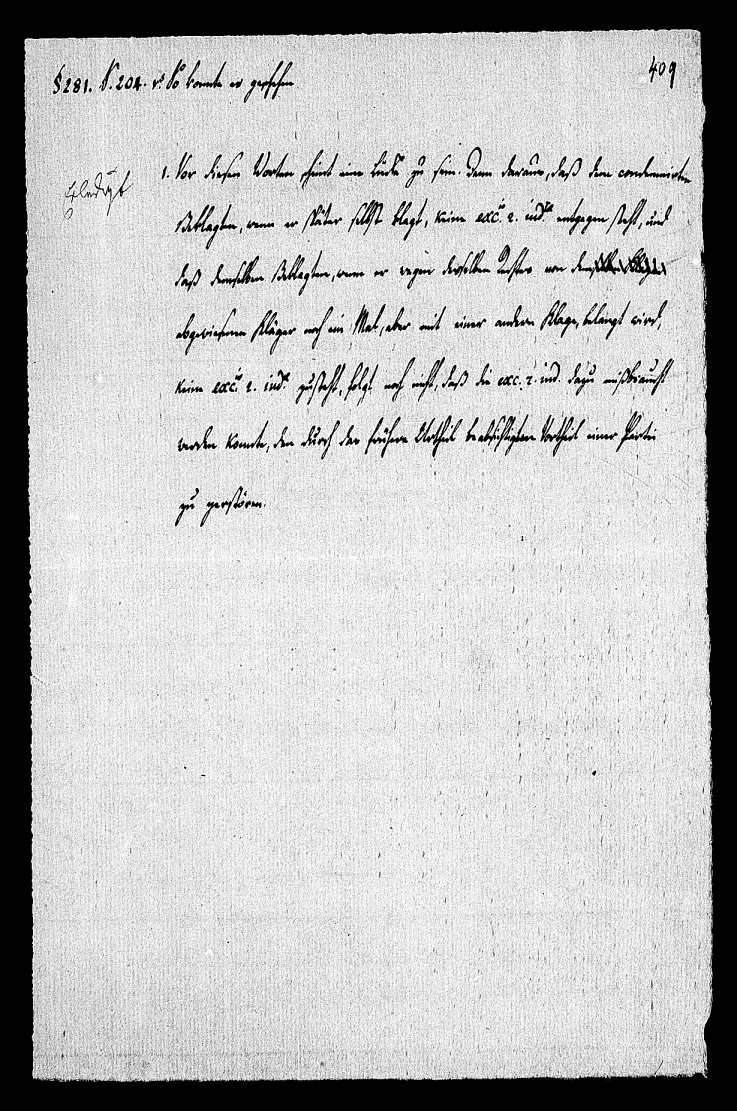 409
§281. S. 204. v: So konnte es geschehen
Erledigt
1. Vor diesen Worten scheint eine Lücke zu sein. Denn daraus, daß dem condemnirten
Beklagten, wenn er später selbst klagt, keine exc. r. iud. entgegen steht, und
daß demselben Beklagten, wenn er wegen desselben Rechtes von dem
abgewiesenen Kläger noch ein Mal, aber mit einer andern Klage, belangt wird,
keine exc. r. iud. zusteht, folgt noch nicht, daß die exc. r. iud. dazu mißbraucht
werden konnte, den durch das frühere Urtheil beabsichtigten Vortheil einer Partei
zu zerstören.